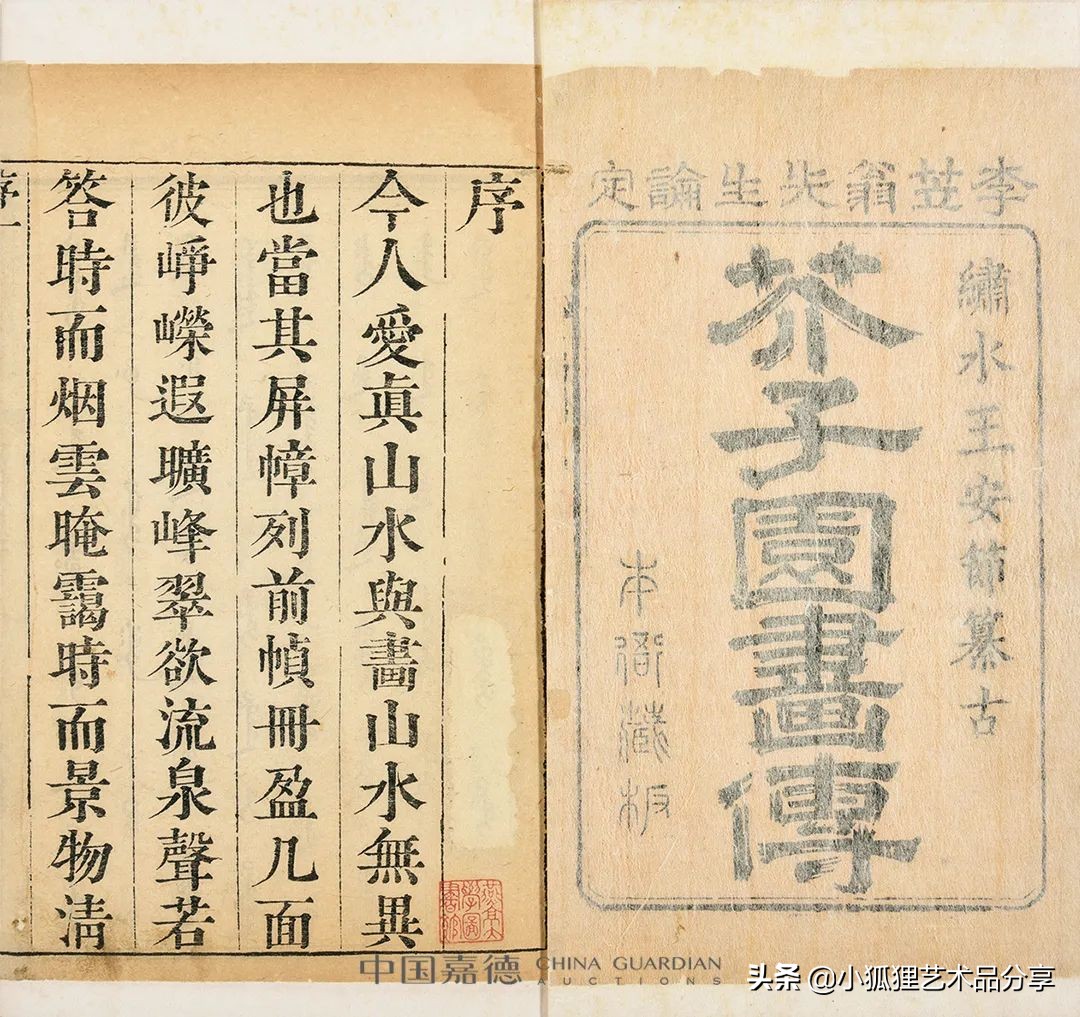 李笠翁先生論定
繡水王安節摹古
芥子園畫傳
本衙藏板
序
今人愛眞山水與畫山水無異
也當其屏幛列前幀冊盈几面
彼崢嶸遐曠峰翠欲流泉聲若
答時而烟雲晻靄時而景物清
燕京大學圖書館
中国嘉德 CHINA GUARDIAN
AUCTIONS
头条 @小狐狸艺术品分享